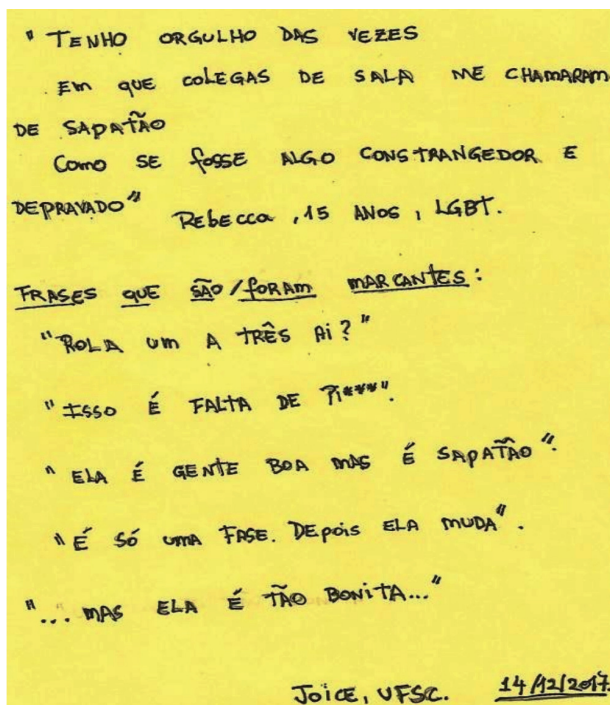 "TENHO ORGULHO DAS VEZES
Em QUE COLEGAS DE SALA ME CHAMARAM
DE SAPATÃO
Como SE fosse ALGO CONSTRANGEDOR E
DEPRAVADO" Rebecca, 15 ANOS, LGBT.
FRASES QUE SÃO/FORAM MARCANTES:
"ROLA Um A TRÊS Aí?"
"ISSO É FALTA DE Pi***".
"ELA É GENTE BOA MAS É SAPATÃO".
"É SÓ UMA FASE. DEPois ELA MUDA".
"... MAS ELA É TÃO BONITA..."
JOICE, UFSC. 14/12/2017.